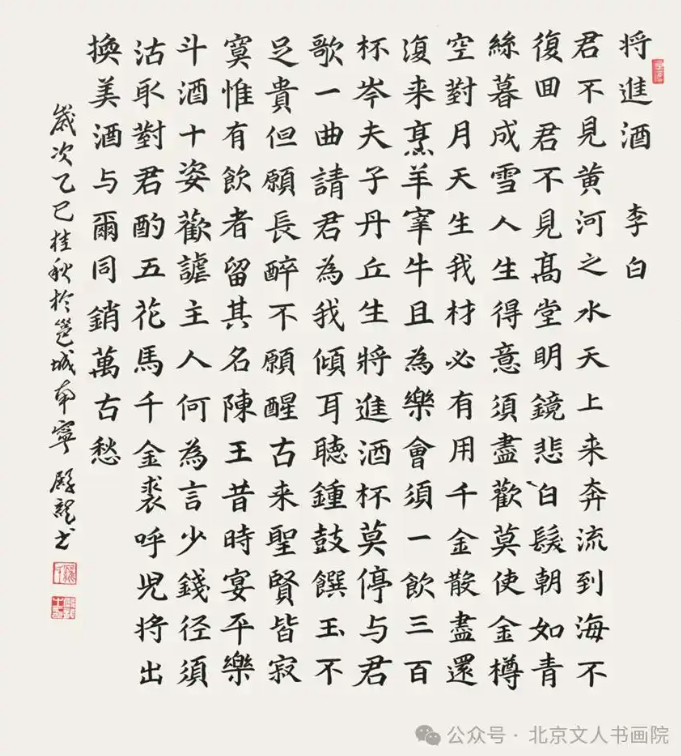 将進酒 李白
君不見黄河之水天上来奔流到海不
復回君不見髙堂明鏡悲白髮朝如青
絲暮成雪人生得意須盡歡莫使金樽
空對月天生我材必有用千金散盡還
復来烹羊宰牛且為樂會須一飲三百
杯岑夫子丹丘生將進酒杯莫停与君
歌一曲請君為我傾耳聽鍾鼓饌玉不
足貴但願長醉不願醒古来聖賢皆寂
寞惟有飲者留其名陳王昔時宴平樂
斗酒十姿歡謔主人何為言少錢径須
沽取對君酌五花馬千金裘呼児将出
換美酒与爾同銷萬古愁
歲次乙巳桂秋於邕城南寧 龍书
公众号 · 北京文人书画院